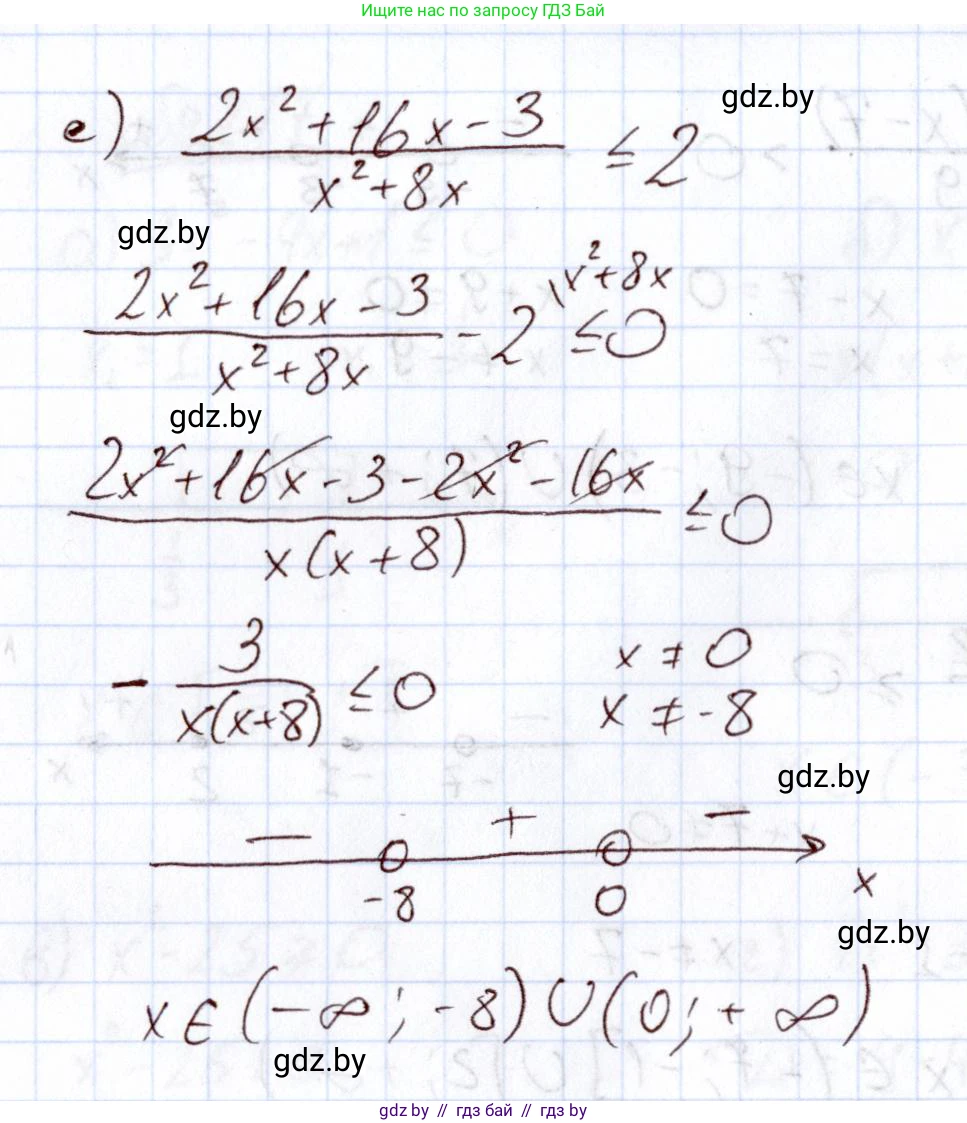 Ищите нас по запросу ГДЗ Бай
е) (2x² + 16x - 3)/(x² + 8x) ≤ 2
gdz.by
gdz.by
(2x² + 16x - 3)/(x² + 8x) - 2 \x² + 8x ≤ 0
gdz.by
(2x² + 16x - 3 - 2x² - 16x)/(x(x + 8)) ≤ 0
- 3/(x(x+8)) ≤ 0
x ≠ 0
x ≠ -8
gdz.by
— + —
-8 0 x
gdz.by
x ∈ (-∞; -8) ∪ (0; +∞)
gdz.by
gdz.by // гдз бай // гдз by